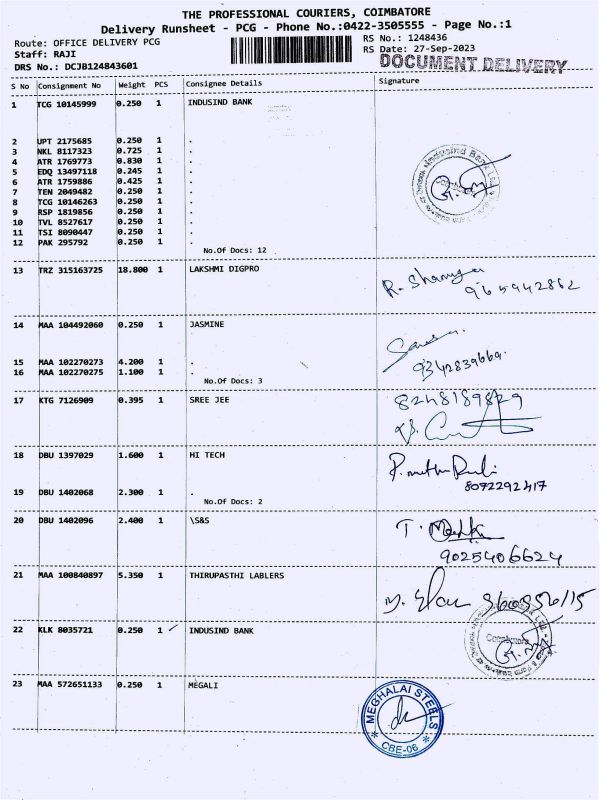 THE PROFESSIONAL COURIERS, COIMBATORE
Delivery Runsheet - PCG - Phone No.:0422-3505555 - Page No.:1
Route: OFFICE DELIVERY PCG
RS No.: 1248436
Staff: RAJI
RS Date: 27-Sep-2023
DRS No.: DCJB124843601
DOCUMENT DELIVERY
S No Consignment No Weight PCS Consignee Details Signature
1 TCG 10145999 0.250 1 INDUSIND BANK
2 UPT 2175685 0.250 1 .
3 NKL 8117323 0.725 1 .
4 ATR 1769773 0.830 1 .
5 EDQ 13497118 0.245 1 .
6 ATR 1759886 0.425 1 .
7 TEN 2049482 0.250 1 .
8 TCG 10146263 0.250 1 .
9 RSP 1819856 0.250 1 .
10 TVL 8527617 0.250 1 .
11 TSI 8090447 0.250 1 .
12 PAK 295792 0.250 1 .
No.Of Docs: 12
IndusInd Bank
Coimbatore
13 TRZ 315163725 18.800 1 LAKSHMI DIGPRO
R. Shamya
965942862
14 MAA 104492060 0.250 1 JASMINE
15 MAA 102270273 4.200 1 .
16 MAA 102270275 1.100 1 .
No.Of Docs: 3
9342839669.
17 KTG 7126909 0.395 1 SREE JEE
8248189829
18 DBU 1397029 1.600 1 HI TECH
8072292417
19 DBU 1402068 2.300 1 .
No.Of Docs: 2
20 DBU 1402096 2.400 1 \S&S
9025406624
21 MAA 100840897 5.350 1 THIRUPASTHI LABLERS
22 KLK 8035721 0.250 1 INDUSIND BANK
Coimbatore
23 MAA 572651133 0.250 1 MEGALI
MEGHALAI STEELS
CBE-06